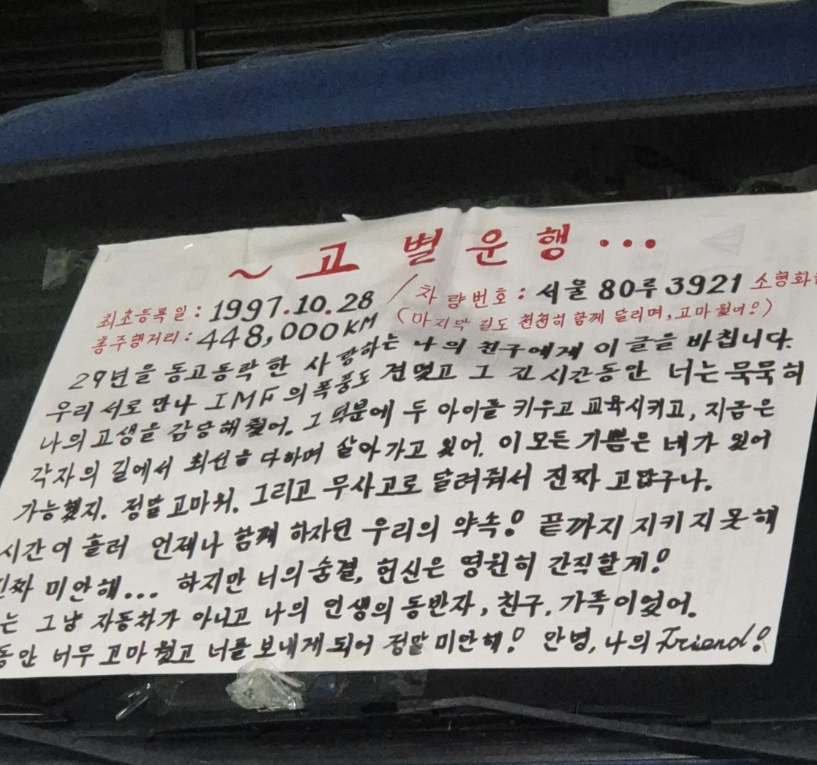 ~ 고 별 운 행 ...
최초등록일 : 1997.10.28 / 차량번호 : 서울 80루 3921 소형화
총주행거리 : 448,000KM (마지막 길도 천천히 함께 달리며, 고마웠어!)
29년을 동고동락 한 사랑하는 나의 친구에게 이 글을 바칩니다.
우리 서로 만나 IMF의 폭풍도 견뎠고 그 긴 시간동안 너는 묵묵히
나의 고생을 감당해줬어. 그 덕분에 두 아이를 키우고 교육시키고, 지금은
각자의 길에서 최선을 다하며 살아가고 있어. 이 모든 기쁨은 네가 있어
가능했지. 정말 고마워. 그리고 무사고로 달려줘서 진짜 고맙구나.
시간이 흘러 언제나 함께 하자던 우리의 약속! 끝까지 지키지 못해
진짜 미안해... 하지만 너의 숨결, 헌신은 영원히 간직할게!
는 그냥 자동차가 아니고 나의 인생의 동반자, 친구, 가족이었어.
동안 너무 고마웠고 너를 보내게 되어 정말 미안해! 안녕, 나의 Friend!